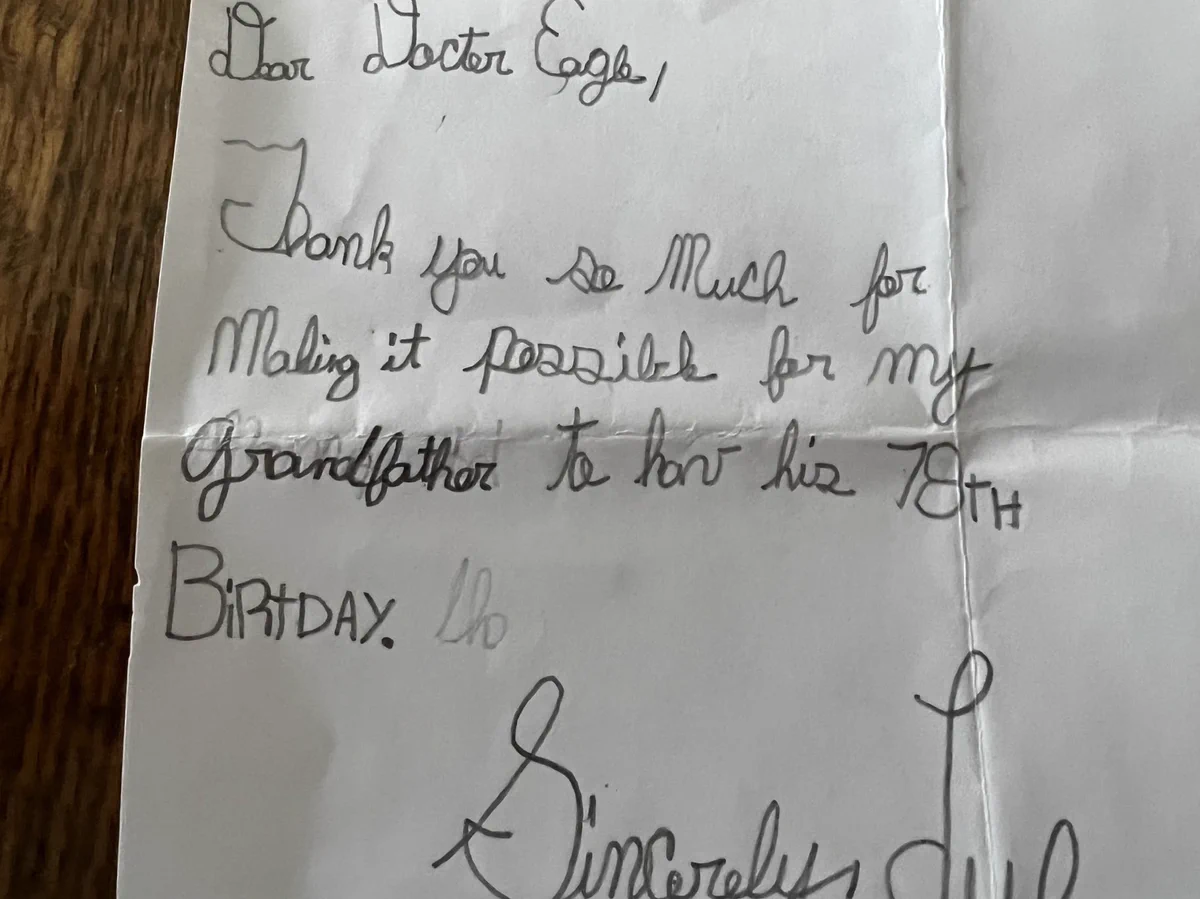 Dear Docter Eagle,
Thank you so Much for
Making it possible for my
Grandfather to hav his 78TH
BiRtDAY.
Sincerely